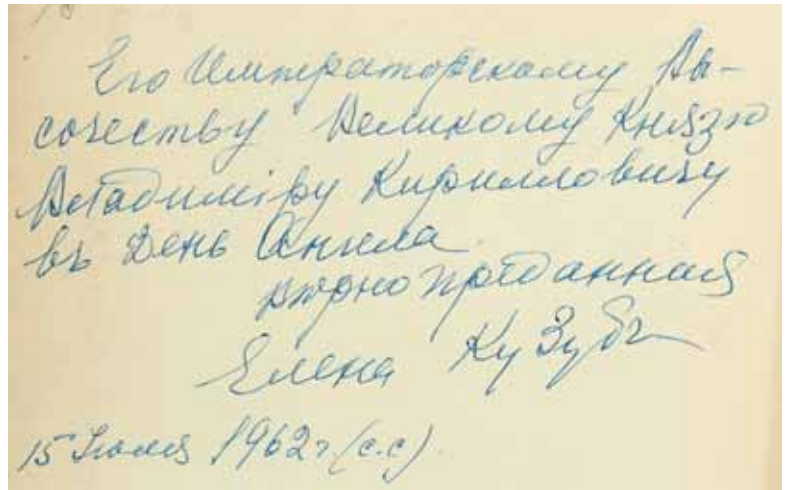 Его Императорскому Вы-
сочеству Великому Князю
Владиміру Кирилловичу
въ День Ангела
вѣрно преданная
Елена
15 Іюля 1962 г. (с.с.)